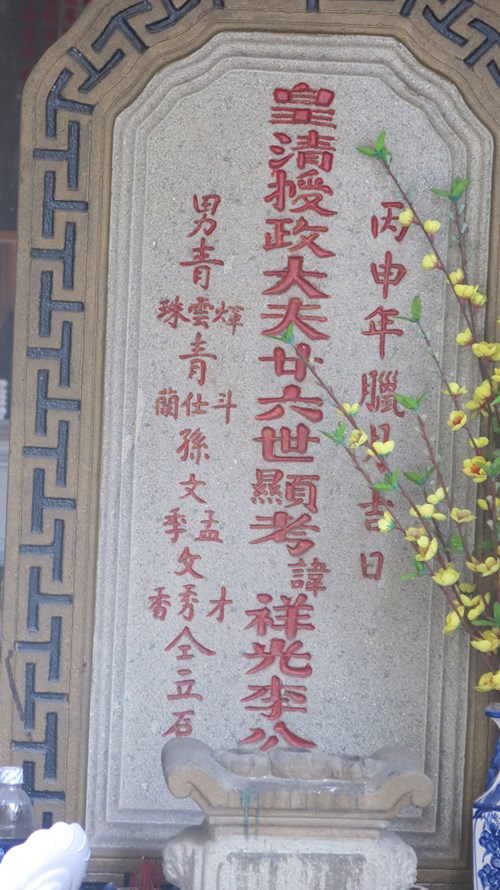 丙申年臘月吉日
皇清授政大夫廿六世顯考諱祥光李公
男青煇雲珠青斗仕蘭孫文孟季文才秀香仝立石